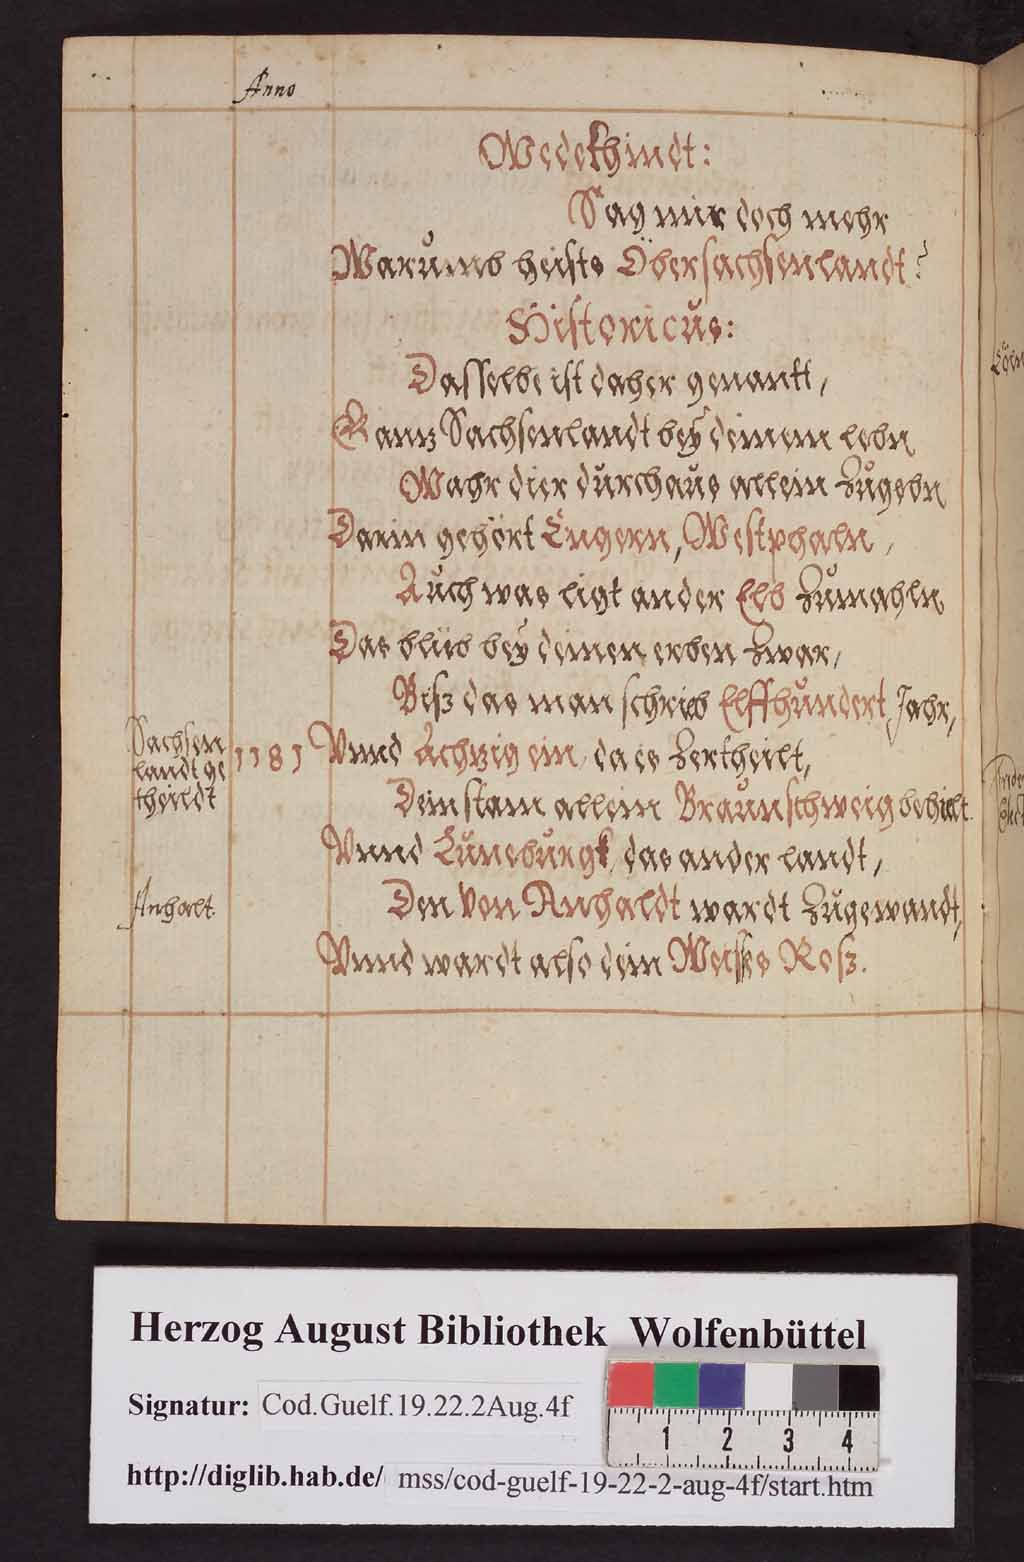 Anno
Wedekhindt:
Sag mir doch mehr
Warumb heists Öbersachsenlandt?
Historicus:
Dasselbe ist daher genantt,
Gantz Sachsenlandt beÿ deinem lebn
Wahr dier durchaus allein Zugebn
Darin gehört Engern, Westphaln,
Auch was ligt an der Elb Zumahln
Das blieb beÿ deinen erben Zwar,
Bisz das man schrieb Elffhundert Jahr,
Sachsen
landt ge
theildt
1181 Vnnd Achtzig ein, da es Zertheilt,
Dein stam allein Braunschweig behielt.
Vnnd Luneburgk, das ander landt,
Anhalt.
Den Von Anhaldt wardt Zugewandt,
Vnnd wardt also dein Weisses Rosz.
Herzog August Bibliothek Wolfenbüttel
Signatur: Cod.Guelf.19.22.2Aug.4f
1 2 3 4
http://diglib.hab.de/ mss/cod-guelf-19-22-2-aug-4f/start.htm